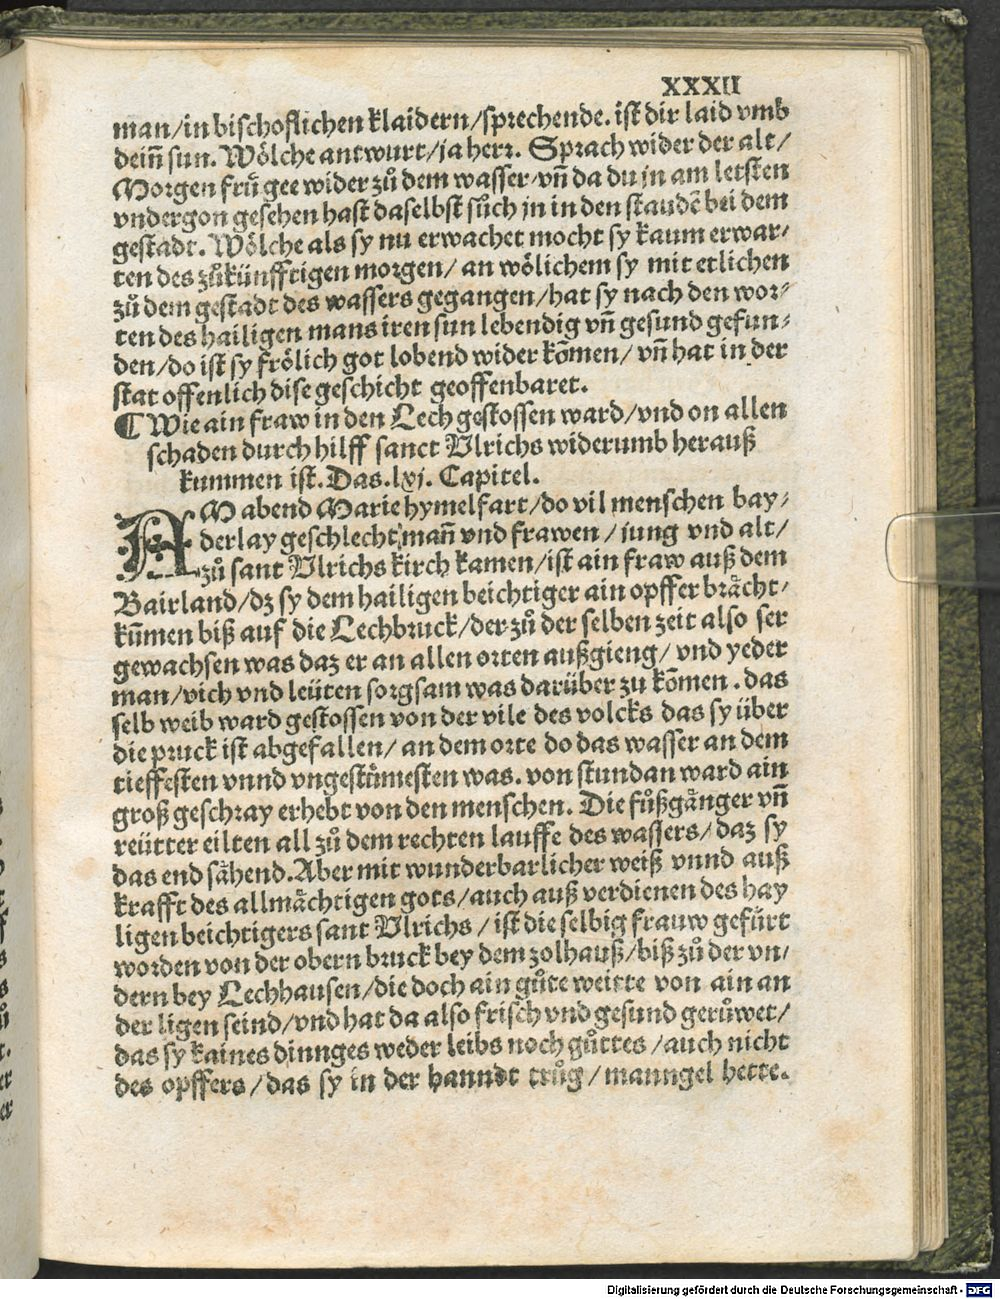 XXXII
man/in bischoflichen klaidern/sprechende. ist dir laid vmb
deiñ sun. Wölche antwurt/ja herr. Sprach wider der alt/
Morgen frů gee wider zů dem wasser vñ da du jn am letsten
vndergon gesehen hast daselbst sůch jn in den staudē bei dem
gestadt. Wölche als sy nu erwachet mocht sy kaum erwar⸗
ten des zůkünfftigen morgen/ an wölichem sy mit etlichen
zů dem gestadt des wassers gegangen/hat sy nach den wor⸗
ten des hailigen mans iren sun lebendig vñ gesund gefun⸗
den/do ist sy frölich got lobend wider kōmen/ vñ hat in der
stat offenlich dise geschicht geoffenbaret.
¶ Wie ain fraw in den Lech gestossen ward/vnd on allen
schaden durch hilff sanct Vlrichs widerumb herauß
kummen ist. Das. lxj. Capitel.
AM abend Marie hymelfart/do vil menschen bay⸗
derlay geschlecht mañ vnd frawen / jung vnd alt/
zů sant Vlrichs kirch kamen/ist ain fraw auß dem
Bairland/dz sy dem hailigen beichtiger ain opffer brächt⸗
kūmen biß auf die Lechbruck/der zů der selben zeit also ser
gewachsen was daz er an allen orten außgieng/ vnd yeder
man/vich vnd leüten sorgsam was darüber zu kōmen . das
selb weib ward gestossen von der vile des volcks das sy über
die pruck ist abgefallen/ an dem orte do das wasser an dem
tieffesten vnnd vngestůmesten was. von stundan ward ain
groß geschray erhebt von den menschen. Die fůßgänger vñ
reütter eilten all zů dem rechten lauffe des wassers/ daz sy
das end sähend. Aber mit wunderbarlicher weiß vnnd auß
krafft des allmächtigen gots/auch auß verdienen des hay
ligen beichtigers sant Vlrichs / ist die selbig frauw gefürt
worden von der obern bruck bey dem zolhauß/biß zů der vn⸗
dern bey Lechhausen/die doch ain gůte weitte von ain an
der ligen seind/vnd hat da also frisch vnd gesund gerůwet/
das sy kaines dinnges weder leibs noch gůttes /auch nicht
des opffers / das sy in der hanndt trůg / manngel hette.
Digitalisierung gefördert durch die Deutsche Forschungsgemeinschaft - DFG